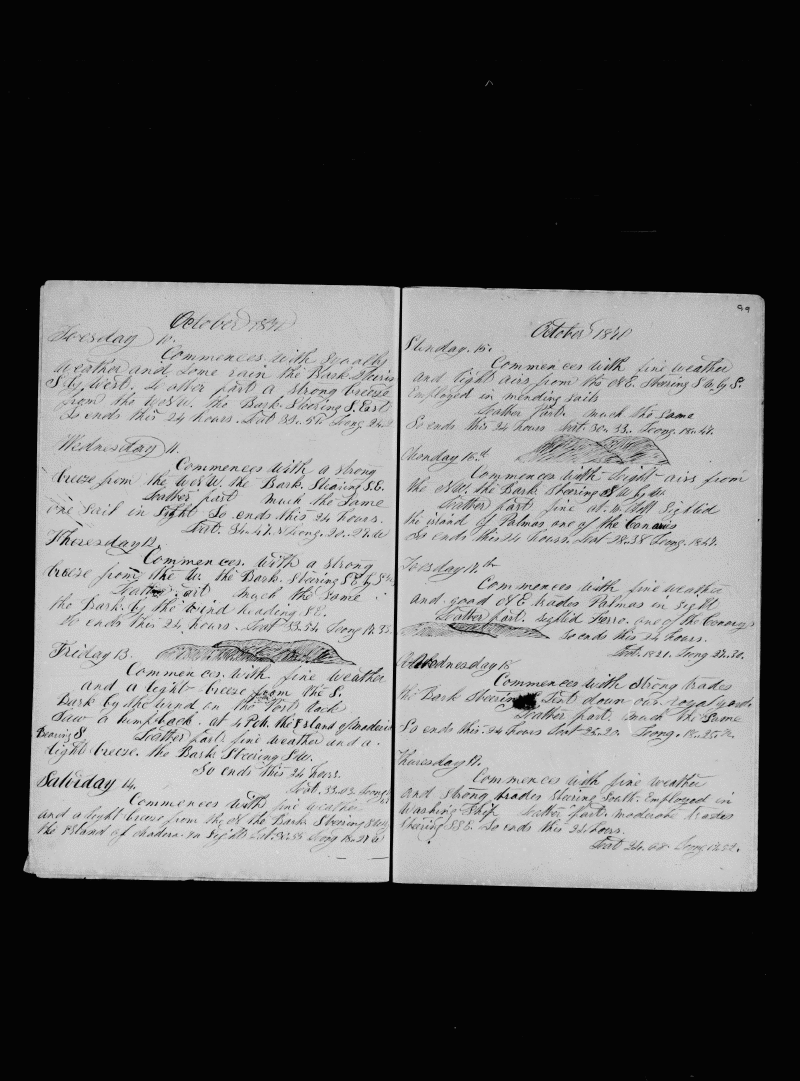 October 1840
Tuesday 10.
Commences with squally
weather and some rain the Bark steering
S by West. Lather part a strong breeze
from the W.S.W. the Bark Steering S. East
So ends this 24 hours. Lat Long. 24
Wednesday 11.
Commences with a strong
breeze from the W.S.W. the Bark. Steering S.E.
Lather part much the same
one sail in sight So ends this 24 hours.
Lat. 34-47. Long. 20.
Thursday 12.
Commences. with a strong
breeze from the W. the Bark. Steering S.E. by S
Lather part much the same
the Bark by the wind heading S.E.
So ends this 24 hours. Lat 33.54 Long 17.35
Friday 13.
Commences. with fine weather
and a light breeze from the S.
Bark by the wind on the Port tack
Saw a humpback. at 4 P.M. the Island of Madeira
Bearing S. Lather part. fine weather and a
light breeze. the Bark Steering S.W.
So ends this 24 hours.
Lat. 33.03. Long
Saturday 14.
Commences with fine weather
and a light breeze from the N the Bark Steering
the Island of Madera in sight Lat. Long
99
October 1840
Sunday. 15.
Commences with fine weather
and light airs from the N.E. Steering S.W. by S.
Employed in mending sails
Lather Part. much the same
So ends this 24 hours Lat. 30.33. Long. 18.47.
Monday 16.th
Commences with light airs from
the N.W. the Bark Steering S W by W
Lather part fine at sighted
the island of Palmas one of the Canaries
So ends this 24 hours. Lat 28.38 Long. 18.47.
Tuesday 17.th
Commences with fine weather
and good N.E. trades Palmas in sight
Lather part. sighted Ferro. one of the Canarys
So ends this 24 hours.
Lat. Long.
Wednesday 18
Commences with strong trades
the Bark Steering Sent down our royal yards
Lather part. much the same
So ends this 24 hours Lat 25.20. Long. 18.25.
Thursday 19.
Commences with fine weather
and strong trades steering South. Employed in
Washing Ship Lather part. moderate trades
Steering S.S.E. So ends this 24 hours.
Lat 24.08 Long